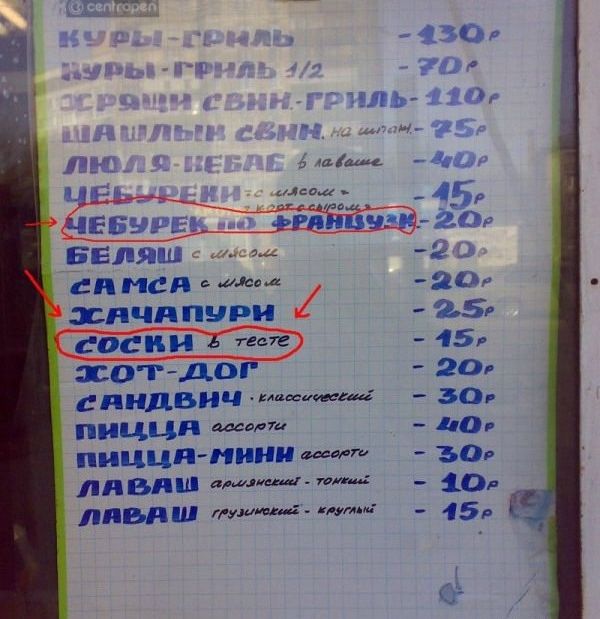 centropen
КУРЫ-ГРИЛЬ - 130р
КУРЫ-ГРИЛЬ 1/2 - 70р
ХРЯЩИ СВИН.-ГРИЛЬ- 110р
ШАШЛЫК СВИН. на шпаж. - 75р
ЛЮЛЯ-КЕБАБ в лаваше - 40р
ЧЕБУРЕКИ "с мясом" - 15р
"карт. с сыром"
ЧЕБУРЕК ПО ФРАНЦУЗК - 20р
БЕЛЯШ с мясом - 20р
САМСА с мясом - 20р
ХАЧАПУРИ - 25р
СОСКИ в тесте - 15р
ХОТ-ДОГ - 20р
САНДВИЧ - классический - 30р
ПИЦЦА ассорти - 40р
ПИЦЦА-МИНИ ассорти - 30р
ЛАВАШ армянский - тонкий - 10р
ЛАВАШ грузинский - круглый - 15р